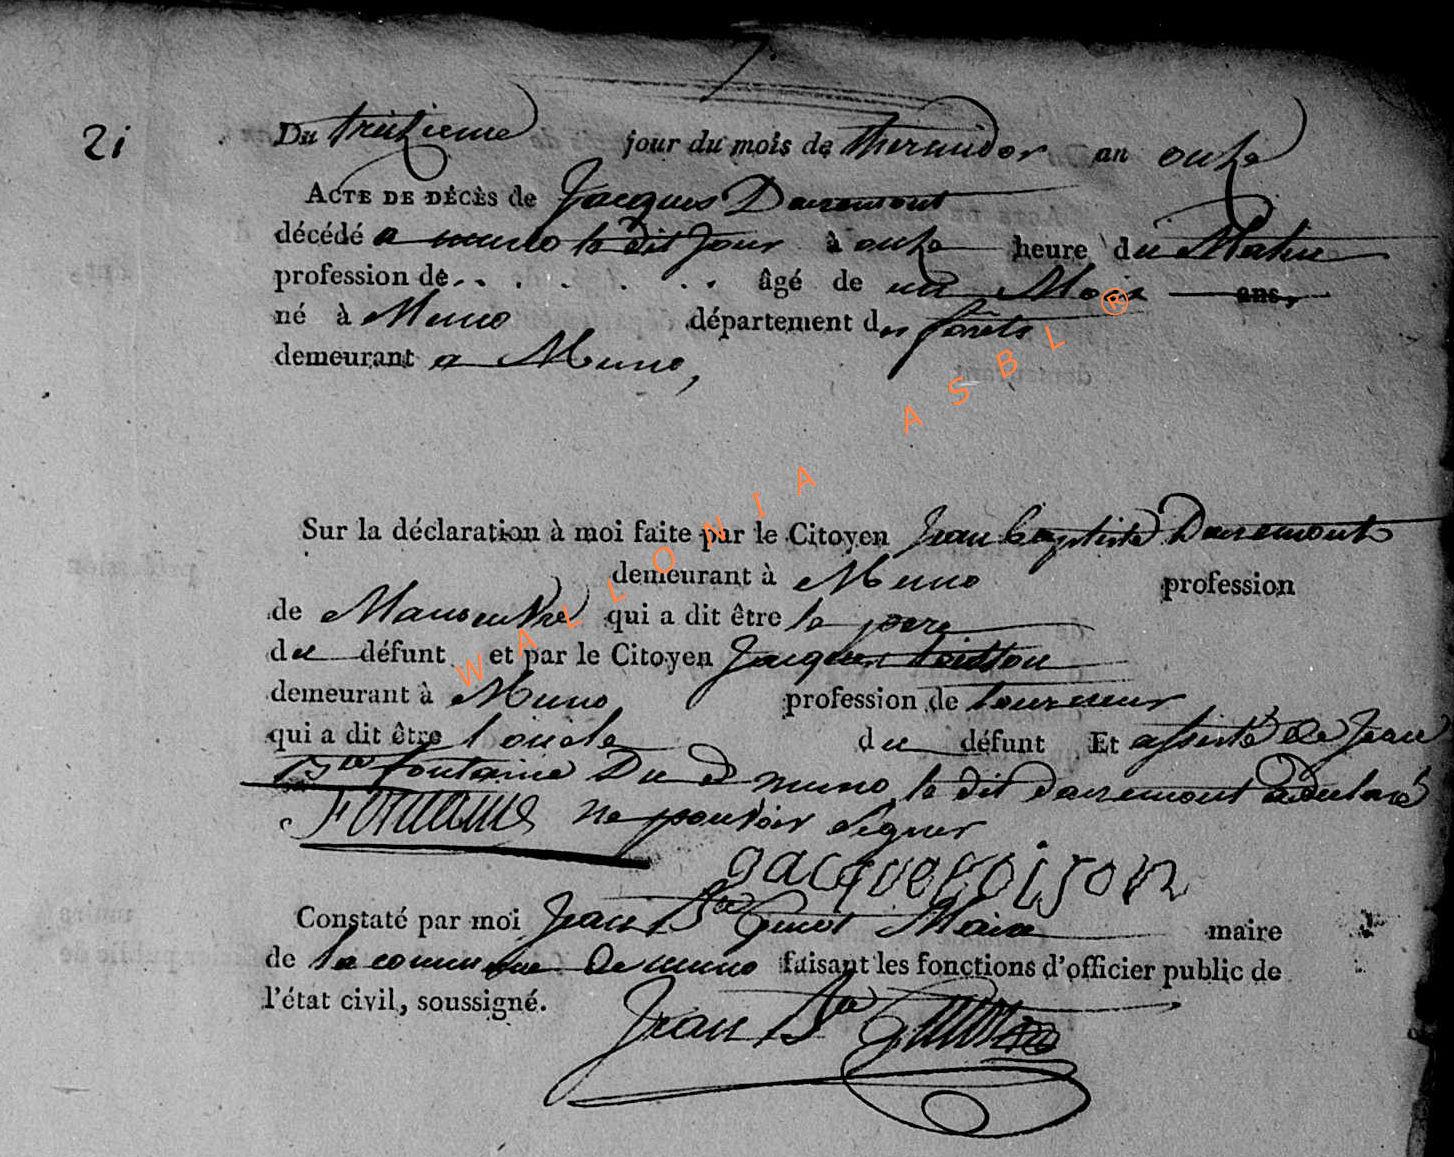 21
Du treizieme jour du mois de thermidor an onze
ACTE DE DÉCÈS de Jacques Dauremont
décédé a muno le dit Jour à onze heure du Matin
profession de . . . . . . . âgé de un Mois ans,
né à Muno département des forêts
demeurant a Muno,
Sur la déclaration à moi faite par le Citoyen Jean baptiste Dauremont
demeurant à Muno profession
de Manoeuvre qui a dit être le pere
du défunt et par le Citoyen Jacques
demeurant à Muno profession de tourneur
qui a dit être l'oncle du défunt Et assisté de Jean
Bte fontaine Du d muno le dit dauremont a declaré
Fontaine ne pouvoir signer
Constaté par moi Jean Bte Guiot Maire maire
de la commune de muno faisant les fonctions d'officier public de
l'état civil, soussigné.
Jean Bte
WALLONIA ASBL ®